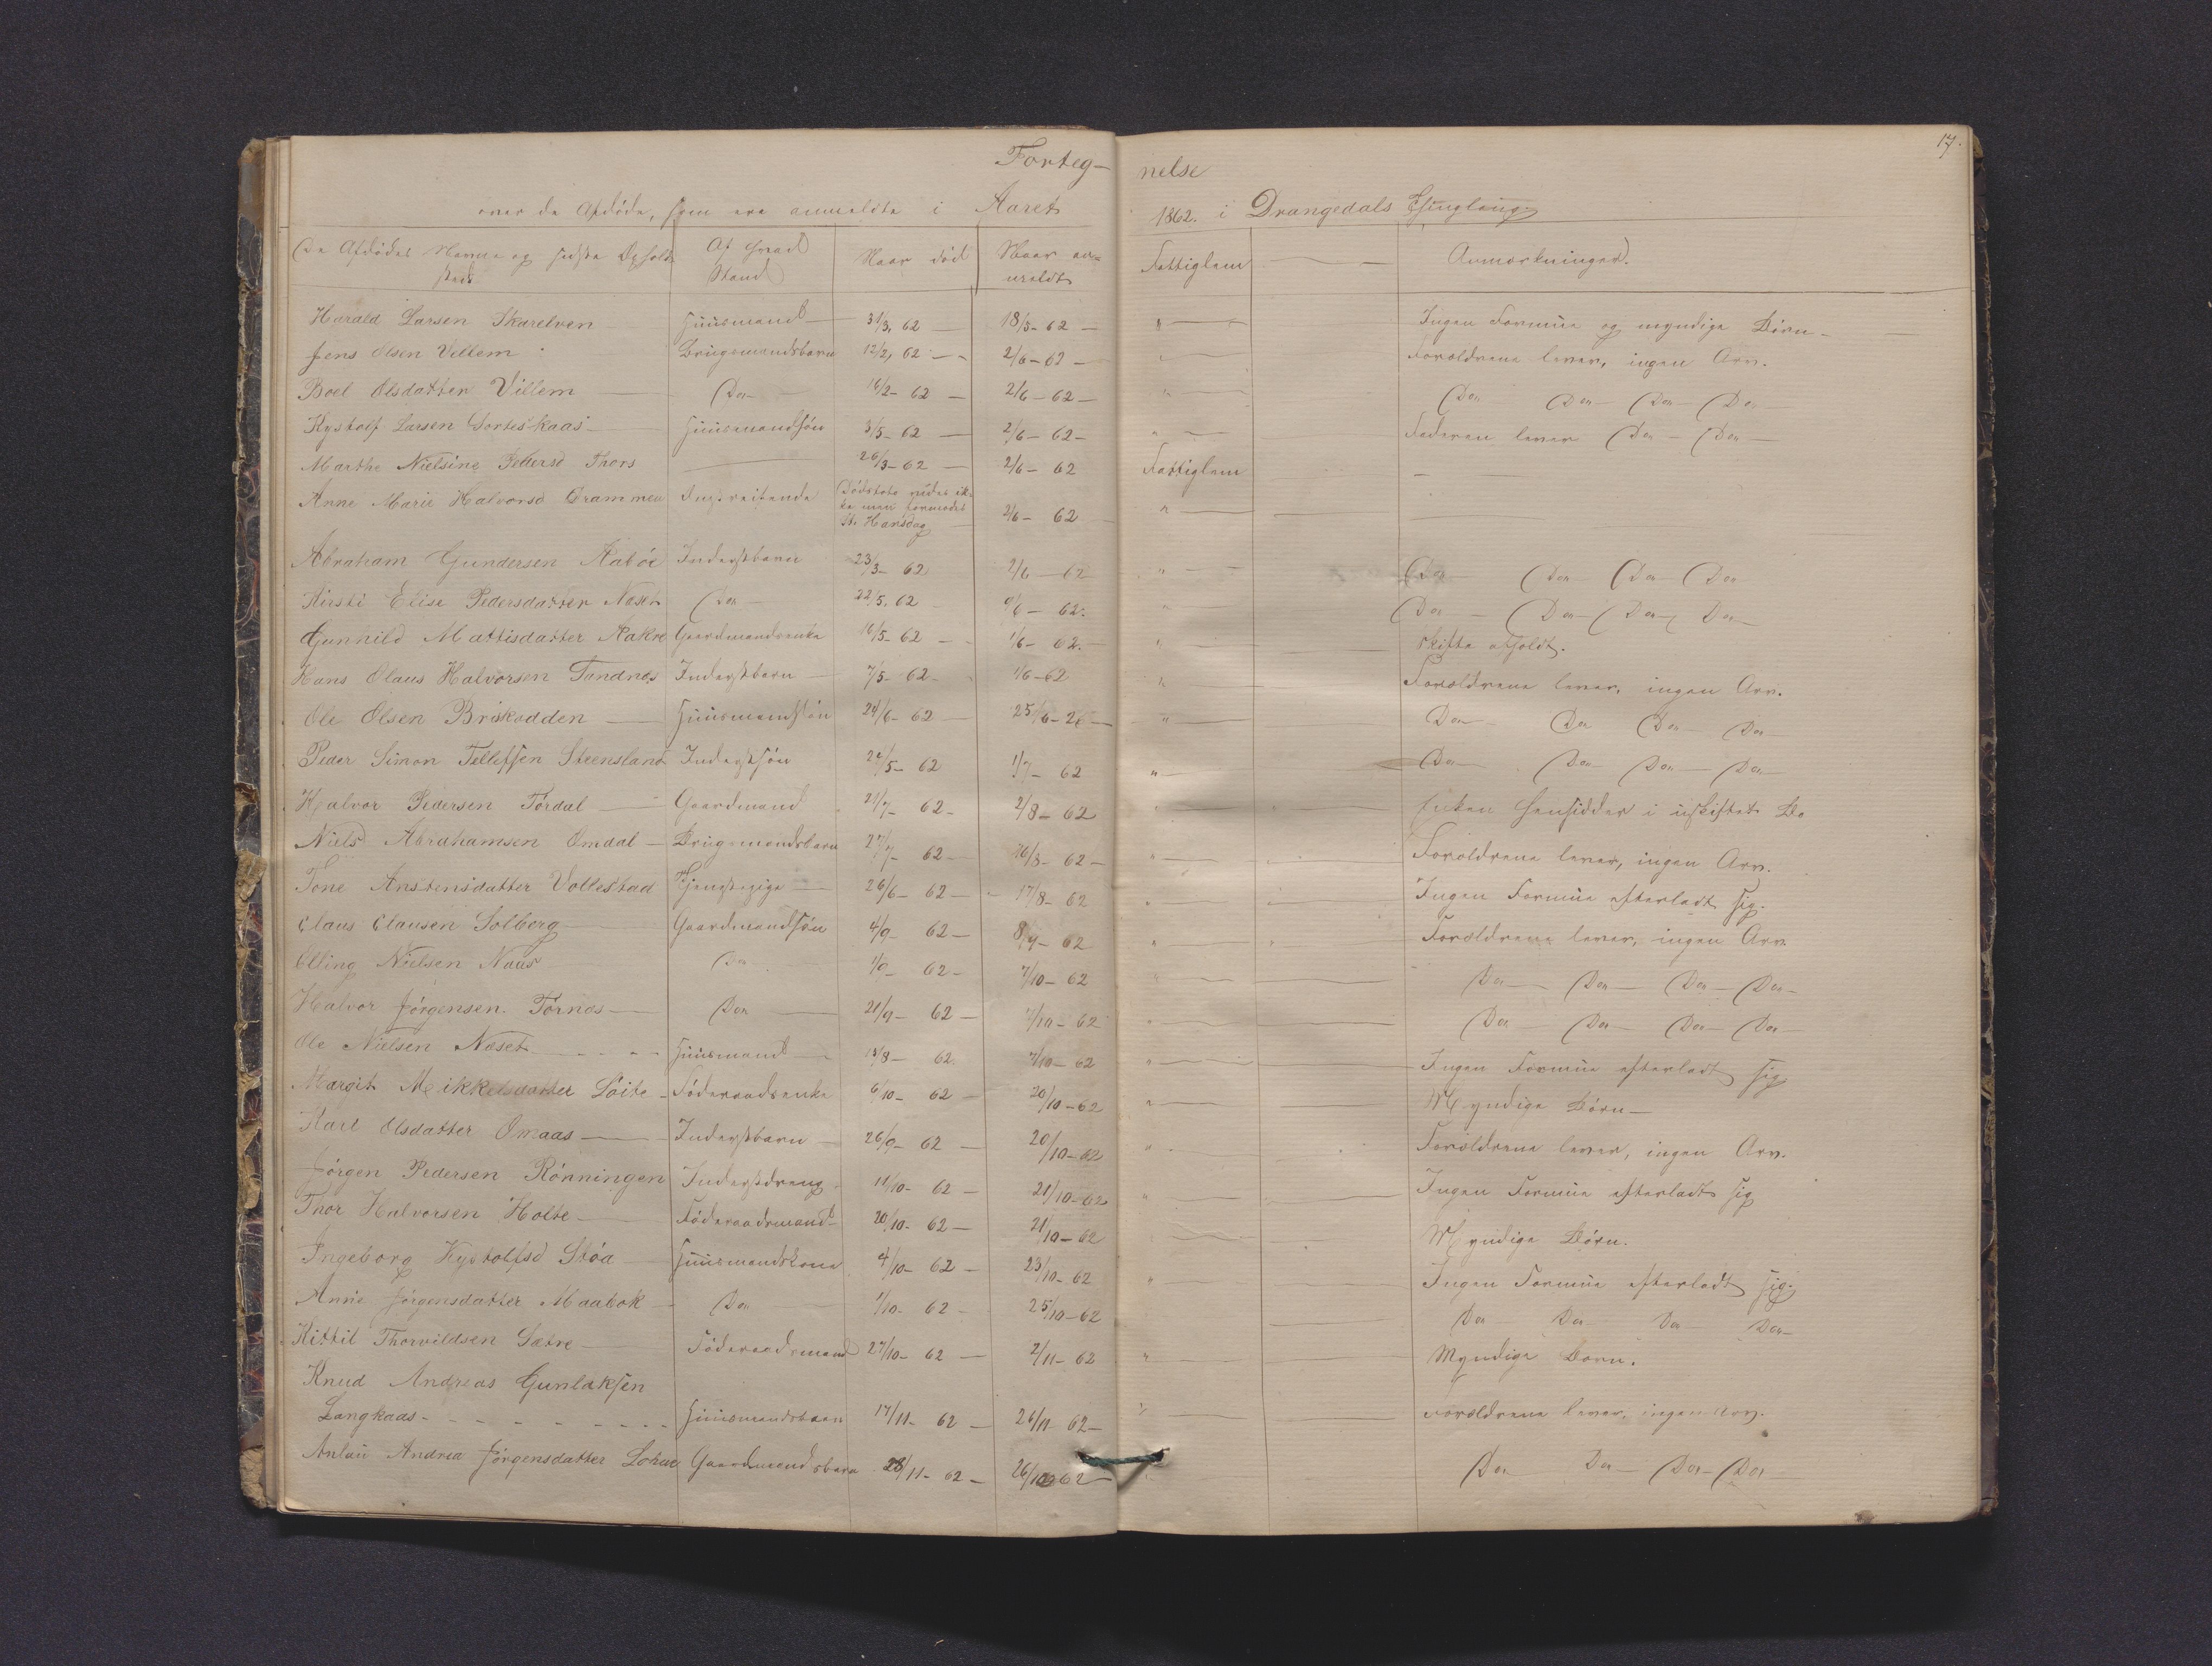 17.
Forteg- nelse
over de Afdöde, som ere anmeldte i Aaret 1862. i Drangedals Thinglaug
De Afdödes Navne og sidste Opholds Af hvad Naar död Naar an- Fattiglem Anmærkninger.
sted Stand meldt
Harald Larsen Skarelven Huusmand 31/3, 62 18/5-62 " Ingen Formue og myndige Börn
Jens Olsen Vellem Brugsmandsbarn 12/2, 62 2/6-62 " Forældrene lever, ingen Arv.
Boel Olsdatter Villem Do 16/2-62 2/6-62 " Do Do Do Do
Kystolf Larsen Sorteskaas Huusmandssön 3/5-62 2/6-62 " Faderen lever Do Do
Marthe Nielsine Pedersd Thors 26/3-62 2/6-62 Fattiglem
Anne Marie Halvorsd Drammen Dödsdato vides ik-
ke men formodes
St. Hansdag 2/6-62 "
Abraham Gundersen Aaböe Inderstbarn 23/3-62 2/6-62 " Do Do Do Do
Kirsti Elise Pedersdatter Næset Do 22/5, 62 /6-62. " Do Do Do Do
Gunhild Mattisdatter Aakre Gaardmandsenke 16/5-62 1/6-62. " Skifte afholdt.
Hans Olaus Halvorsen Tandnes Inderstbarn 7/5-62 1/6-62 " Forældrene lever, ingen Arv.
Ole Olsen Briskodden Huusmandssön 24/6-62 25/6-26 " Do Do Do Do
Peder Simon Tellefsen Steensland Inderstsön /5-62 1/7-62 " Do Do Do Do
Halvor Pedersen Tördal Gaardmand 21/7-62 2/8-62 " Enken hensidder i uskiftet Bo
Niels Abrahamsen Omdal Brugsmandsbarn 27/7-62 16/8-62 " Forældrene lever, ingen Arv.
Tone Anstensdatter Vollestad Tjenestepige 26/6-62 17/8-62 " Ingen Formue efterladt sig.
Claus Clausen Solberg Gaardmandssön 4/9-62 8/9-62 " Forældrene lever, ingen Arv
Elling Nielsen Naas Do 1/9-62 7/10-62 " Do Do Do Do
Halvor Jörgensen Törnes Do 21/9-62 7/10-62 " Do Do Do Do
Ole Nielsen Næset Huusmand 15/8-62 7/10-62 " Ingen Formue efterladt sig
Margit Mikkelsdatter Löite Föderaadsenke 6/10-62 20/10-62 " Myndige Börn
Kari Olsdatter Omaas Inderstbarn 26/9-62 20/10-62 " Forældrene lever, ingen Arv.
Jörgen Pedersen Rönningen Inderstdreng 11/10-62 21/10-62 " Ingen Formue efterladt sig
Thor Halvorsen Holte Föderaadsmand 20/10-62 21/10-62 Myndige Börn.
Ingeborg Kystolfsd Stöa Huusmandskone 4/10-62 23/10-62 " Ingen Formue efterladt sig.
Anne Jörgensdatter Maabok Do 1/10-62 25/10-62 Do Do Do Do
Kittil Thorvildsen Sætre Föderaadsmand 27/10-62 2/11-62 " Myndige Born.
Knud Andreas Gunlaksen
Langkaas Huusmandsbarn 17/11-62 26/11 62 " Forældrene lever, ingen Arv.
Andrea Jörgensdatter Gaardmandsbarn 28/11-62 26/12 62 " Do Do Do Do